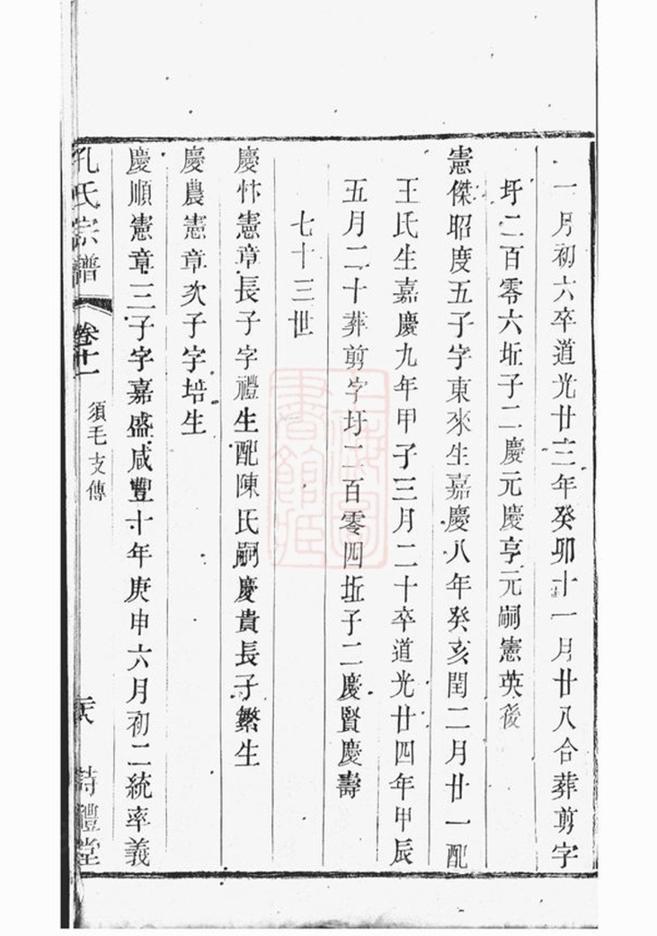 一月初六卒道光廿三年癸卯十一月廿八合葬剪字
圩二百零六坵子二慶元慶亨元嗣憲英後
憲傑昭度五子字東來生嘉慶八年癸亥閏二月廿一配
王氏生嘉慶九年甲子三月二十卒道光廿四年甲辰
五月二十葬剪字圩二百零四坵子二慶賢慶壽
七十三世
慶忭憲章長子字禮生配陳氏嗣慶貴長子繁生
慶農憲章次子字培生
慶順憲章三子字嘉盛咸豐十年庚申六月初二統率義
孔氏宗譜
卷十一
須毛支傳
詩禮堂
上海圖
書館藏